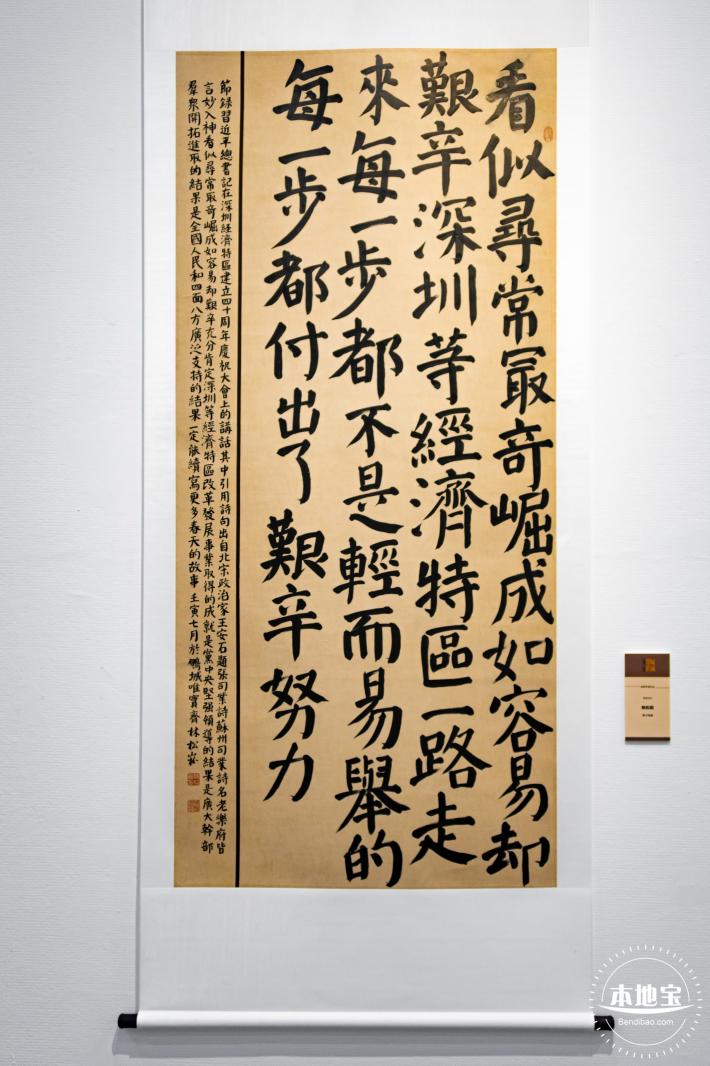 看似尋常冣奇崛成如容易却
艱辛深圳等經濟特區一路走
來每一步都不是輕而易舉的
每一步都付出了艱辛努力
節錄習近平總書記在深圳經濟特區建立四十周年慶祝大會上的講話其中引用詩句出自北宋政治家王安石題張司業詩蘇州司業詩名老樂府皆
言妙入神看似尋常冣奇崛成如容易却艱辛充分肯定深圳等經濟特區改革發展事業取得的成就是黨中央堅强領導的結果是廣大幹部
羣衆開拓進取的結果是全國人民和四面八方廣泛支持的結果一定能續寫更多春天的故事 壬寅七月於鵬城唯實齋林松
本地宝
Bendibao.com